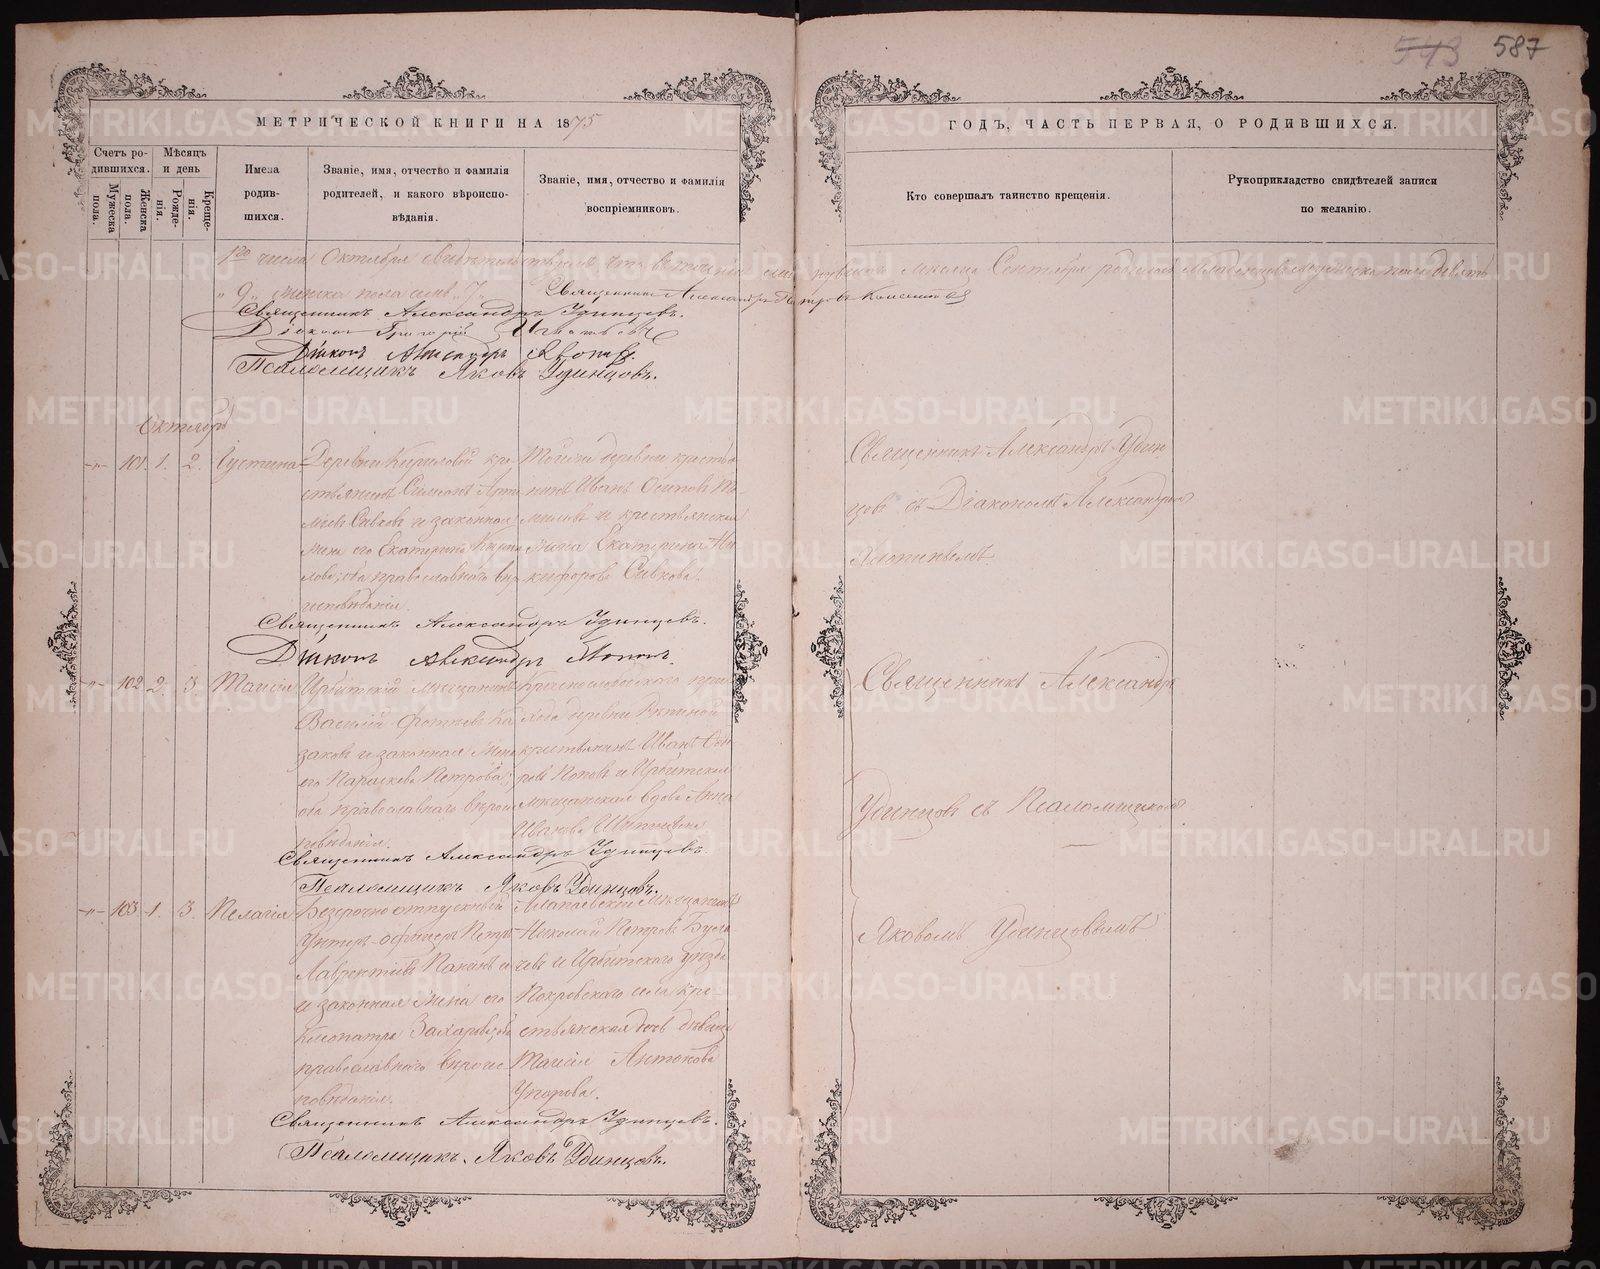 543 587
МЕТРИЧЕСКОЙ КНИГИ НА 1875
ГОДЪ, ЧАСТЬ ПЕРВАЯ, О РОДИВШИХСЯ.
Счетъ родившихся.
Мужеска пола.
Женска пола.
Мѣсяцъ и день
Рожденія.
Крещенія.
Имена родившихся.
Званіе, имя, отчество и фамилія родителей, и какого вѣроисповѣданія.
Званіе, имя, отчество и фамилія воспріемниковъ.
Кто совершалъ таинство крещенія.
Рукоприкладство свидѣтелей записи по желанію.
1го числа Октября
Сентября
„9„ женска пола семь „7„
Священникъ Александръ Удинцевъ.
Діаконъ Григорій
Діаконъ Александръ
Псаломщикъ Яковъ Удинцовъ.
Октябрь
101. 1. 2. Іустина
Деревни Кириловой кре-
стьянинъ Симеонъ
Сивковъ и законная
жена его Екатерина Кирил-
лова; оба православнаго вѣро-
исповѣданія.
Тойже деревни крестья-
нинъ Иванъ Осиповъ
и крестьянская
жена Екатерина Ни-
кифорова Сивкова.
Священникъ Александръ Удин-
цовъ съ Діакономъ Александромъ
Священникъ Александръ Удинцевъ.
Діаконъ Александръ
102 2. 3. Таисія
Ирбитскій мѣщанинъ
Василій Фотіевъ Ка-
заковъ и законная жена
его Параскева Петрова;
оба православнаго вѣроис-
повѣданія.
Краснослободскаго при-
хода деревни
крестьянинъ Иванъ
Поповъ и Ирбитская
мѣщанская вдова Анна
Иванова
Священникъ Александръ
Удинцовъ съ Псаломщикомъ
Яковомъ Удинцовымъ
Священникъ Александръ Удинцевъ.
Псаломщикъ Яковъ Удинцовъ.
103 1. 3. Пелагія
Безсрочно отпускный
Унтеръ-офицеръ Петръ
Лаврентіевъ Панинъ
и законная жена его
Клеопатра Захарова; оба
православнаго вѣроис-
повѣданія.
Алапаевскій мѣщанинъ
Николай Петровъ
и Ирбитскаго уѣзда
Покровскаго села кре-
стьянская дочь дѣвица
Таисія Антонова
Упорова.
Священникъ Александръ Удинцевъ.
Псаломщикъ Яковъ Удинцовъ.
METRIKI.GASO-URAL.RU